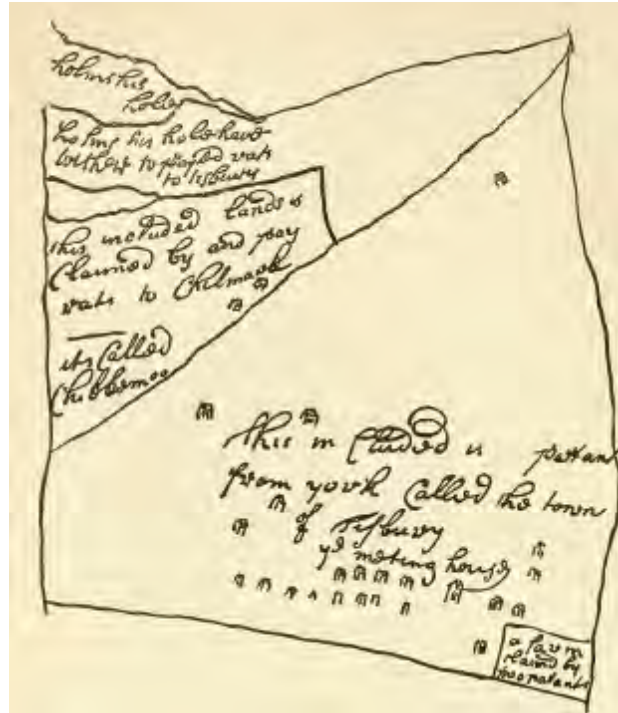 holms his
holes
holms his hole have
to payed rats
to tisbury
this included lands is
claimed by and pay
rats to Chilmark
its called
this in cluded is pattan
from york called the town
of tisbury
ye meting house
a farm
claimd by
two patants